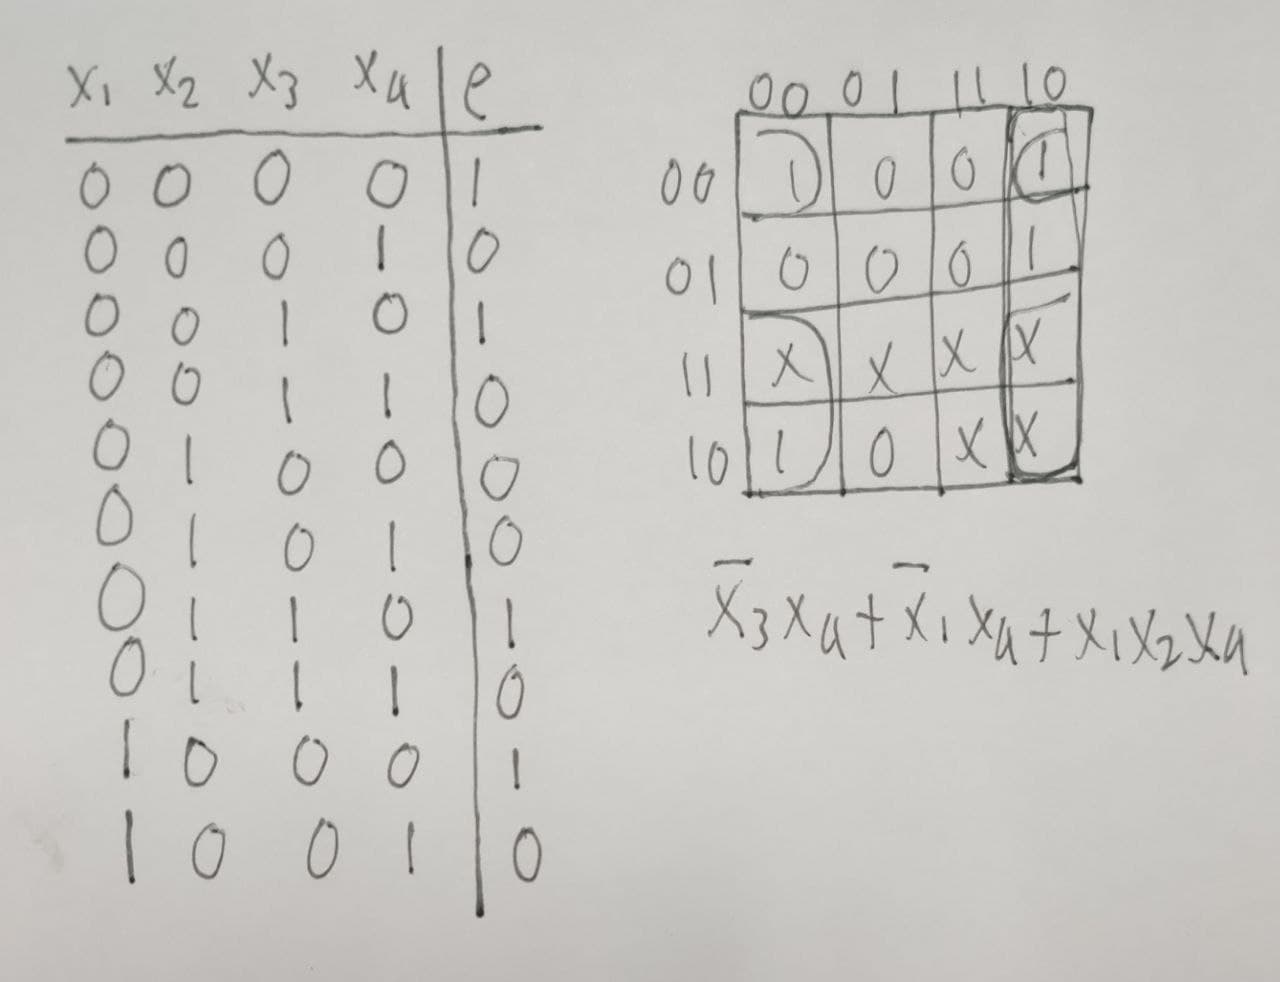 x₁ x₂ x₃ x₄ | e
0 0 0 0 | 1
0 0 0 1 | 0
0 0 1 0 | 1
0 0 1 1 | 0
0 1 0 0 | 0
0 1 0 1 | 0
0 1 1 0 | 1
0 1 1 1 | 0
1 0 0 0 | 1
1 0 0 1 | 0
00 01 11 10
00 1 0 0 1
01 0 0 0 1
11 X X X X
10 1 0 X X
x̄₃x₄+x̄₁x₄+x₁x₂x₄